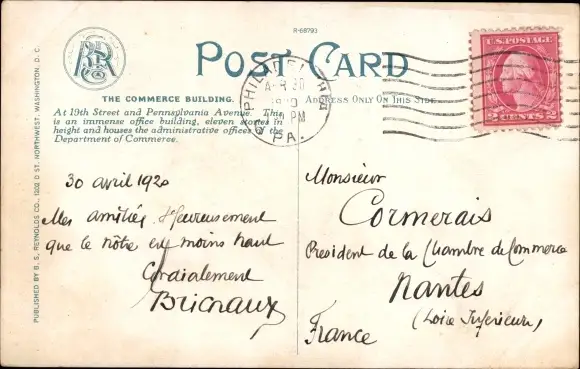 R-68793
BSR Co
POST CARD
THE COMMERCE BUILDING.
At 19th Street and Pennsylvania Avenue. This
is an immense office building, eleven stories in
height and houses the administrative offices of the
Department of Commerce.
PUBLISHED BY B. S. REYNOLDS CO., 1202 D ST. NORTHWEST, WASHINGTON, D. C.
ADDRESS ONLY ON THIS SIDE
PHILADELPHIA
APR 30
PM
PA.
U.S. POSTAGE
2 CENTS 2
30 avril 1920
Mes amitiés. Heureusement
que le nôtre est moins haut
Cordialement
Monsieur
Cormerais
President de la Chambre de Commerce
Nantes
(Loire Inferieure)
France